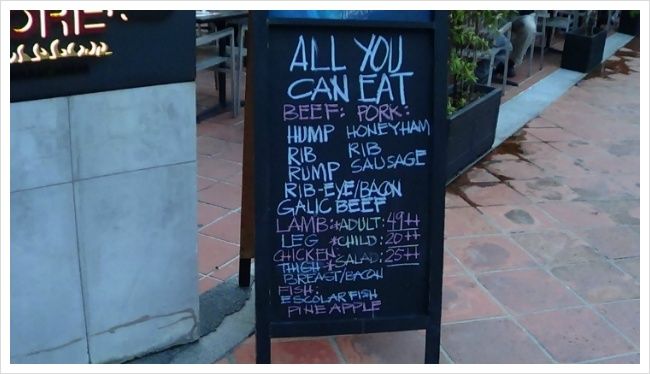 ALL YOU
CAN EAT
BEEF: PORK:
HUMP HONEYHAM
RIB RIB
RUMP SAUSAGE
RIB-EYE/BACON
GALIC BEEF
LAMB: *ADULT: 49++
LEG *CHILD: 20++
CHICKEN: *SALAD: 25++
THIGH
BREAST/BACON
FISH:
ESCOLAR FISH
PINEAPPLE